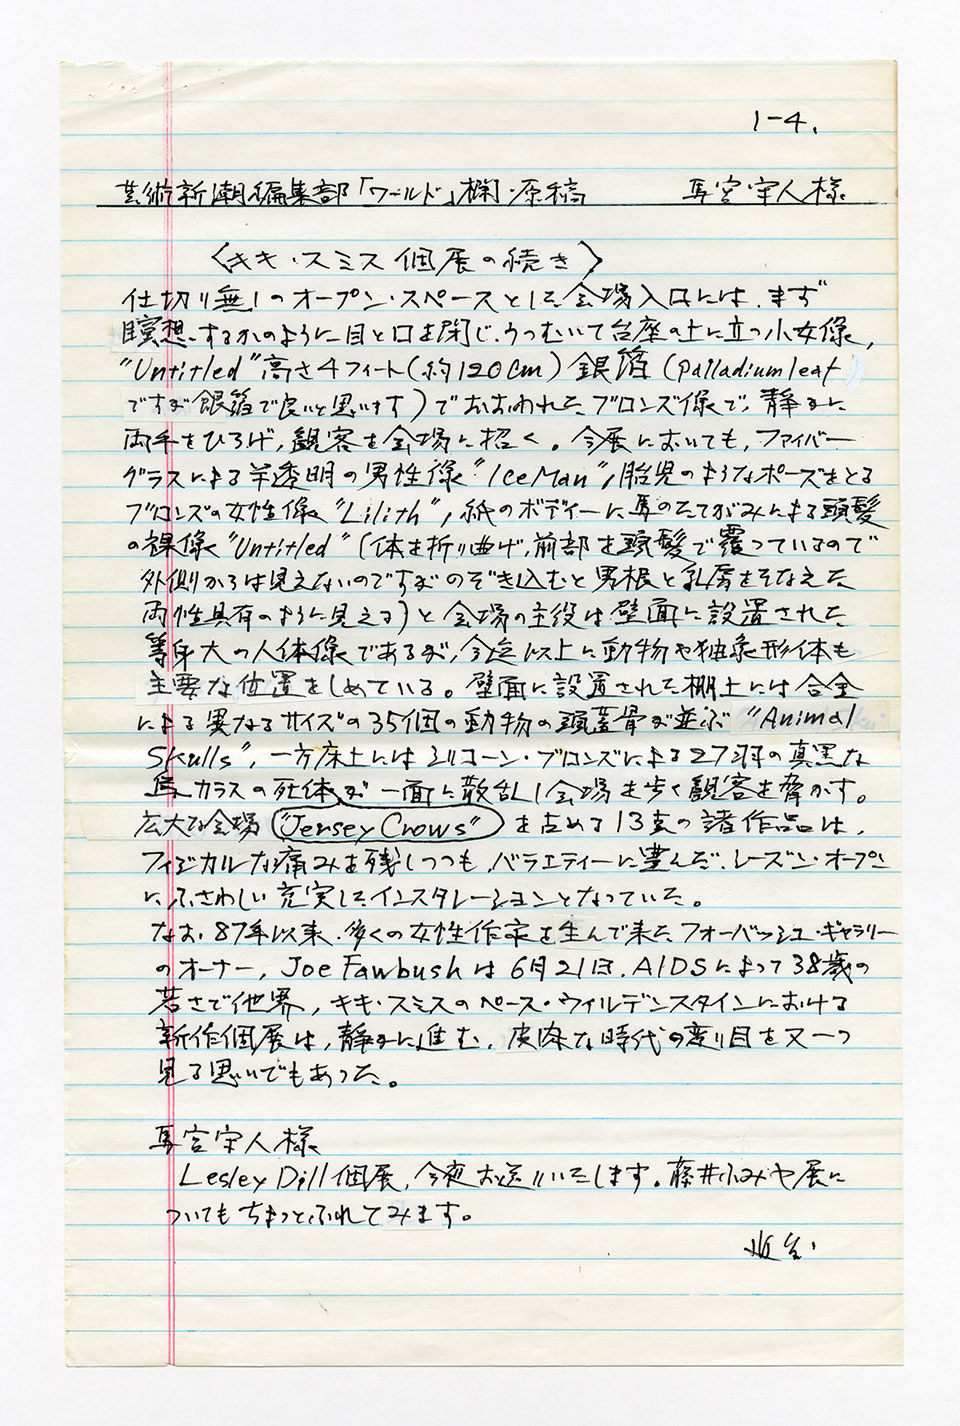 1-4.
芸術新潮編集部「ワールド」欄・原稿 馬宮守人様
〈キキ・スミス個展の続き〉
仕切り無しのオープン・スペースとした会場入口には、まず
瞑想するかのように目と口を閉じ、うつむいて台座の上に立つ少女像,
"Untitled"高さ4フィート(約120cm)銀箔(palladium leaf
ですが銀箔で良いと思います)でおおわれたブロンズ像で、静かに
両手をひろげ,観客を会場に招く。今展においても、ファイバー
グラスによる半透明の男性像"Ice Man",胎児のようなポーズをとる
ブロンズの女性像"Lilith",紙のボディーに馬のたてがみによる頭髪
の裸像"Untitled"(体を折り曲げ,前部を頭髪で覆っているので
外側からは見えないのですがのぞき込むと男根と乳房をそなえた
両性具有のように見える)と会場の主役は壁面に設置された
等身大の人体像であるが,今迄以上に動物や抽象形体も
主要な位置をしめている。壁面に設置された棚上には合金
による異なるサイズの35個の動物の頭蓋骨が並ぶ"Animal
Skulls",一方床上にはシリコーン・ブロンズによる27羽の真黒な
カラスの死体が一面に散乱し会場を歩く観客を脅かす。
広大な会場"Jersey Crows"を占める13点の諸作品は,
フィジカルな痛みを残しつつも,バラエティーに豊んだ、シーズン・オープン
にふさわしい充実したインスタレーションとなっていた。
なお、87年以来、多くの女性作家を生んで来たフォーバッシュ・ギャラリー
のオーナー, Joe Fawbushは6月21日、AIDSによって38歳の
若さで他界,キキ・スミスのペース・ウィルデンスタインにおける
新作個展は,静かに進む、皮肉な時代の変り目を又一つ
見る思いでもあった。
馬宮守人様
Lesley Dill個展,今夜お送りいたします。藤井ふみや展に
ついてもちょっとふれてみます。